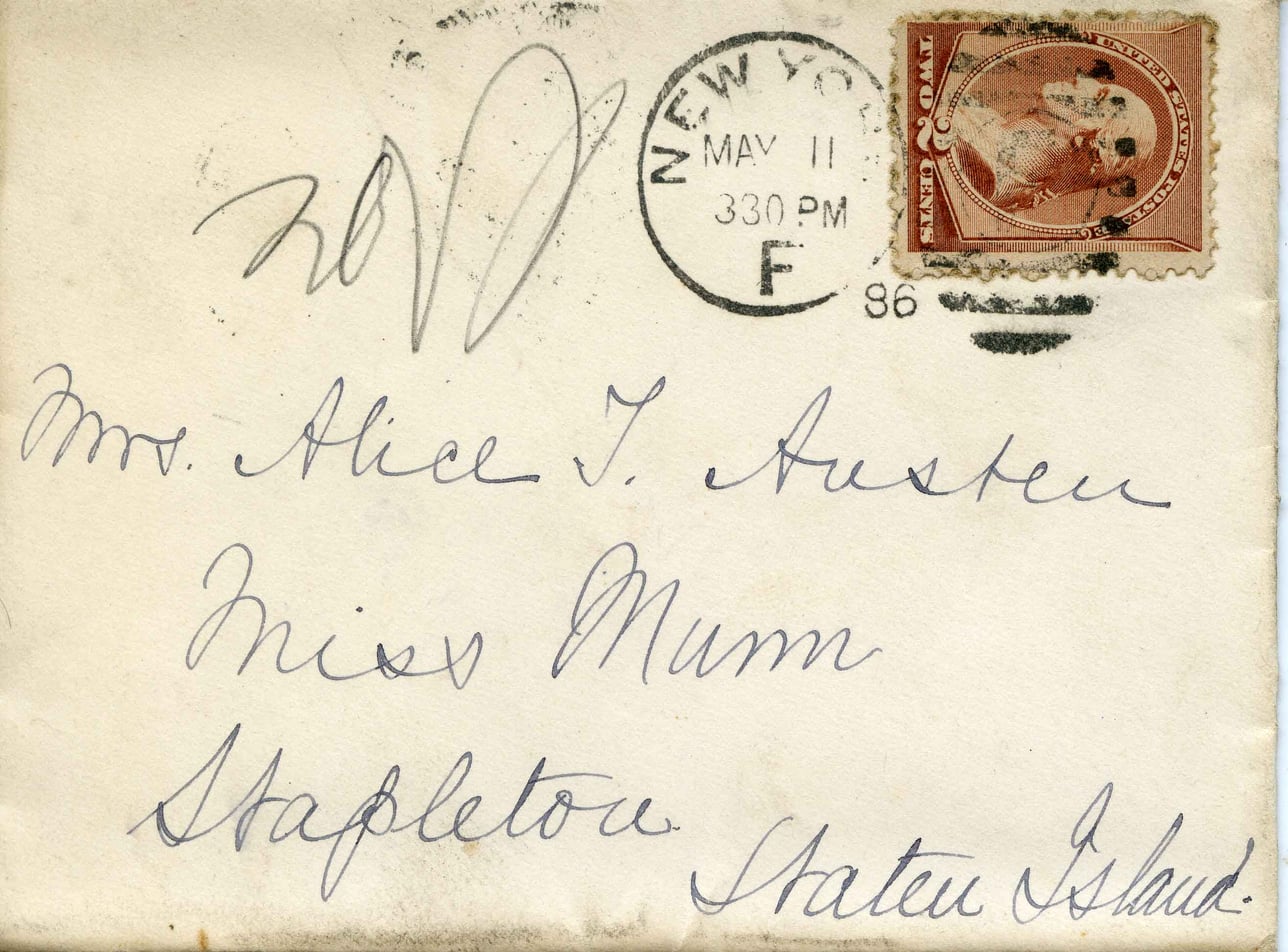 NEW YO
MAY 11
330 PM
F
86
UNITED STATES POSTAGE
TWO 2 CENTS
Mrs. Alice T. Austen
Miss Munn
Stapleton
Staten Island.